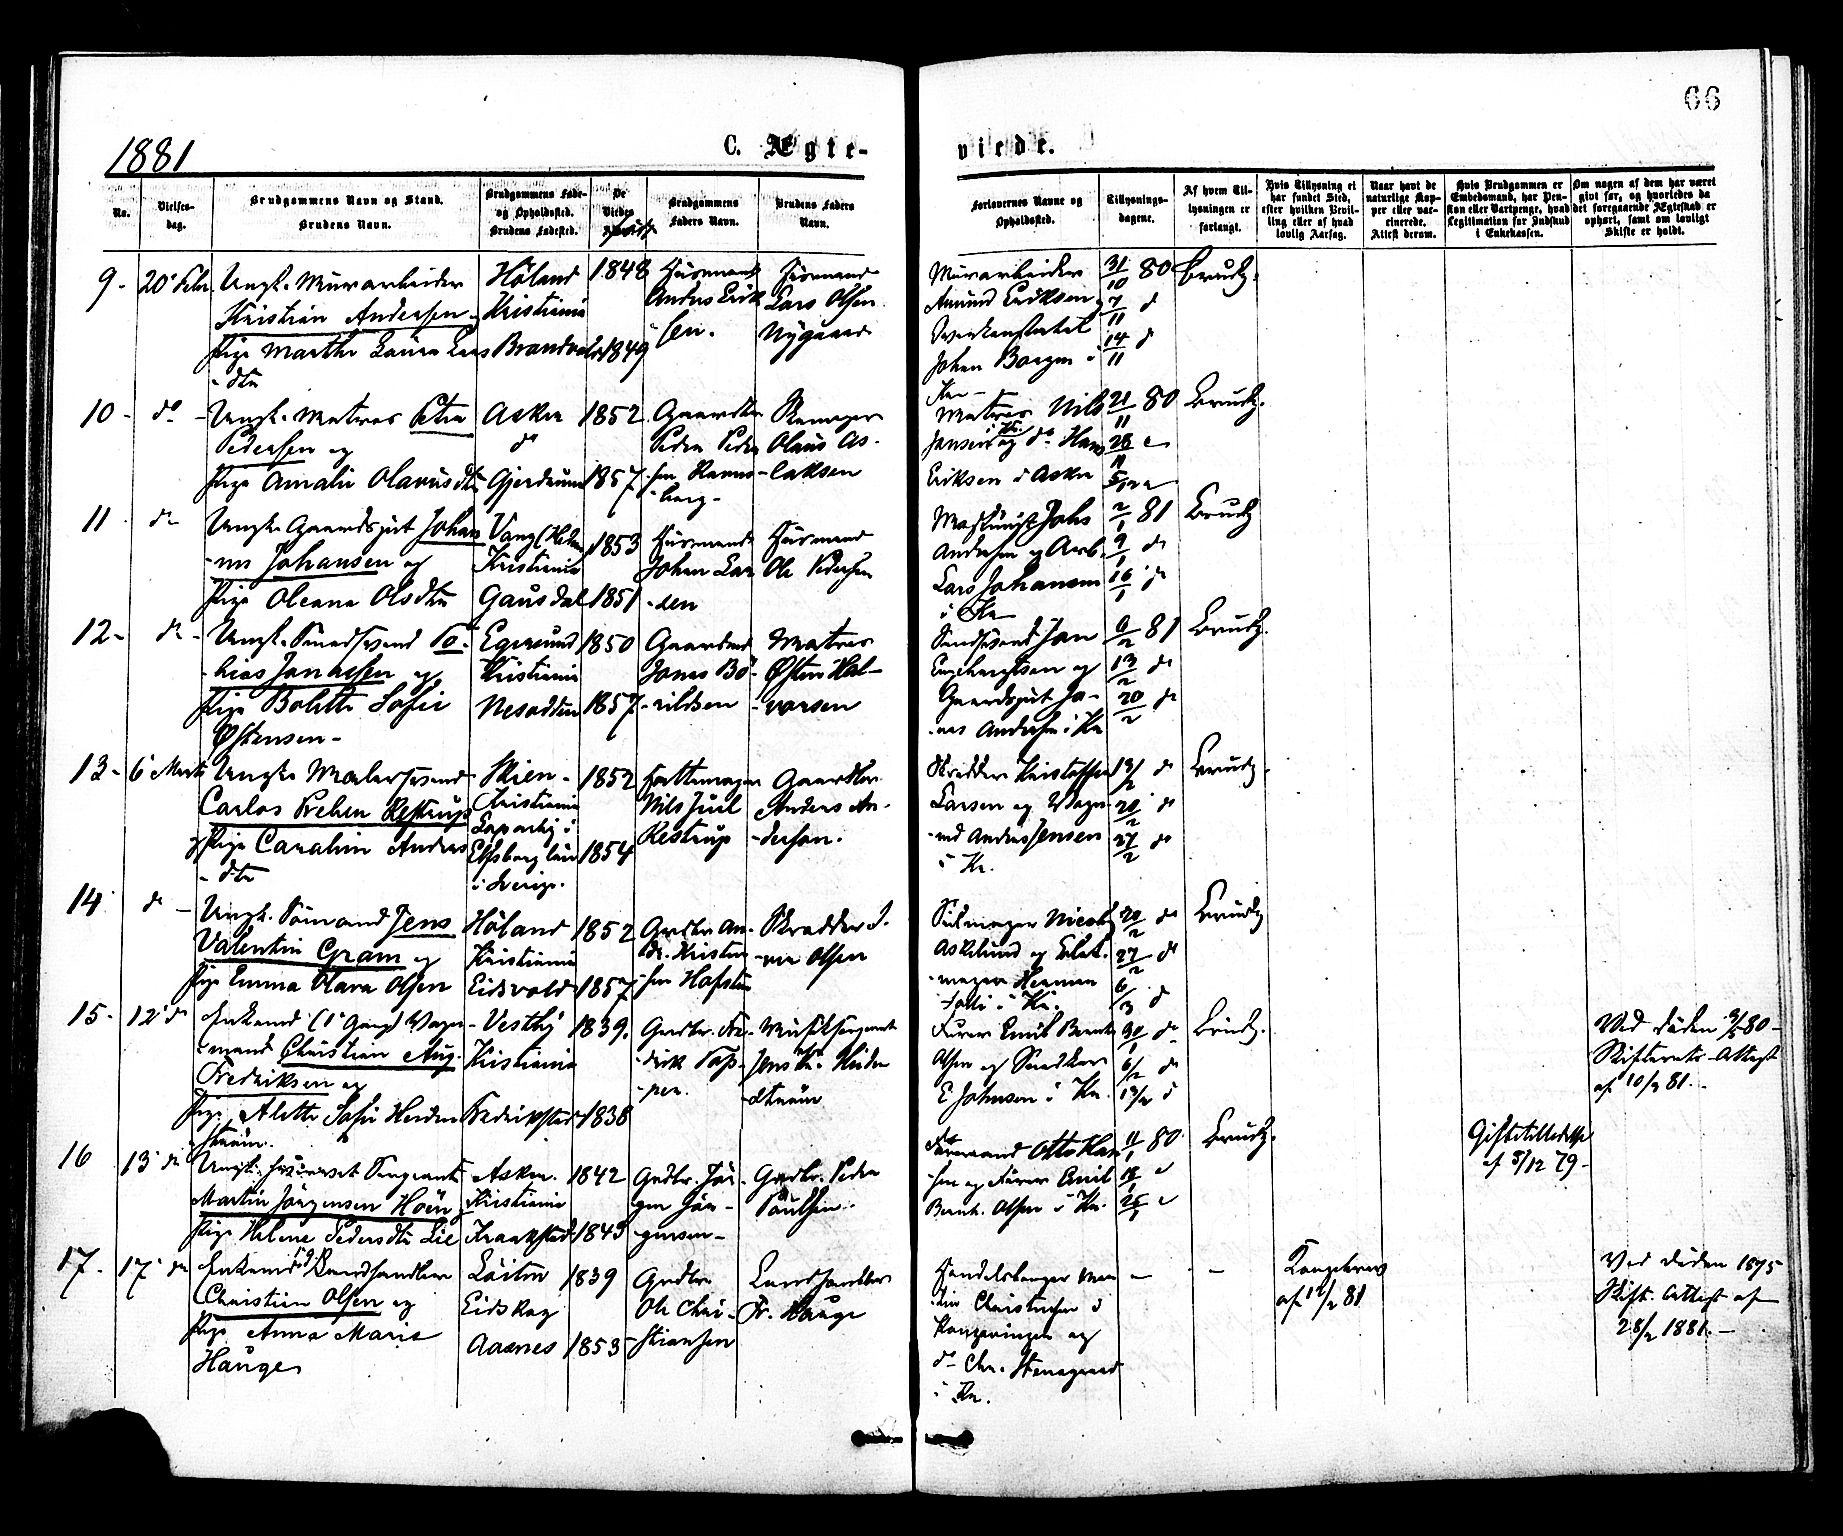 66
1881
C. Ægte-
viede.
No.
Vielses-
dag.
Brudgommens Navn og Stand.
Brudens Navn.
Brudgommens Føde-
og Opholdssted.
Brudens Fødested.
De
Viedes
Brudgommens
Faders Navn.
Brudens Faders
Navn.
Forlovernes Navne og
Opholdssted.
Tillysnings-
dagene.
Af hvem Til-
lysningen er
forlangt.
Hvis Tillysning ei
har fundet Sted,
efter hvilken Bevil-
ling eller af hvad
lovlig Aarsag.
Naar havt de
naturlige Kop-
per eller vac-
cinerede.
Attest derom.
Hvis Brudgommen er
Embedsmand, har Pen-
sion eller Vartpenge, hvad
Legitimation for Indskud
i Enkekassen.
Om nogen af dem har været
gift før, og hvorledes da
det foregaaende Ægteskab er
ophørt, samt om lovligt
Skifte er holdt.
9 - 20 Febr. Ungk. Murarbeider
Kristian Andersen og
Pige Marthe Laura Lars
- dtr
Høland
Kristiania
1848
1849
Husmand
Anders Erik
sen.
Husmand
Lars Olsen
Nygaard
Murarbeider
Amund Eriksen og
Johan Borgen i
Kr -
31/10 80
7/11 d
14/11 d
Brudg.
10 - do - Ungk. Matros
Pedersen og
Pige Amalie Olavusdtr
Asker
do
Gjerdrum
1852
1857
Peder Peder
sen
- berg -
Olaus As-
laksen
Matros Nils
Jansen og do Hans
Eriksen i Asker
21/11 80
28
Brudg.
11 do Ungk. Gaardsgut Johan
- nes Johansen og
Pige Oleana Olsdtr
Vang
Kristiania
Gausdal
1853
1851
Husmand
Johan Lar
- sen
Husmand
Ole Pedersen
Johs
Andersen og Arb.
Lars Johansen
i Kr
2/1 81
9/1 do
16/1 do
Brudg
12 - do - Ungk. Smedsvend To-
- bias Jonassen og
Pige Bolette Sofie
Østensen -
Egersund
Kristiania
Nesodden
1850
1857
Jonas Bø-
- rildsen
Matros
Østen Hal-
- vorsen
Smedsvend Jan
Engebregtsen og
Gaardsgut Jo-
- nas Andersen i Kr
6/2 81
13/2 do
20/2 do
Brudg.
13 - 6 Marts Ungk. Malersvend
Carlos Preben Restrup
og Pige Caroline Anders
- dtr
Skien -
Kristiania
Elfsborg län
i Sverige.
1852
1854
Hattemager
Nils Juel
Restrup
Gaardbr.
Anders An-
- derson.
Skrædder Kristoffer
Larsen og Vogn-
- md Anders Jensen
i Kr.
13/2 do
20/2 do
27/2 do
Brudg.
14 do - Ungk. Sømand Jens
Valentin Gram og
Pige Emma Olava Olsen
Høland
Kristiania
Eidsvold
1852
1857
Grdbr An-
dr. Kristen
- sen
Skrædder I-
- ver Olsen
Askelund og
- mager Herman
i Kr.
20/2 do
27/2 do
6/3 d
Brudg
15 - 12 do Enkemd (1 Gang) Vogn-
- mand Christian Aug.
Fredriksen og
Pige Alette Sofie Heiden
- strøm.
Vestby
Kristiania
Fredrikstad
1839.
1838
Grdbr. Fre-
- drik
- per.
Musiksergeant
Jens Kr. Heiden
- strøm
Furer Emil Bernh
Olsen og Snedker
E Johnsen i Kr.
30/1 do
6/2 do
13/2 d
Brudg.
Ved Døden 9/5 80 -
Skifterets Attest
af 10/2 81. -
16 13 do Ungk. Sergeant
Martin Jørgensen Høen og
Pige Helene Pedersdtr Lie
Asker.
Kristiania
Kraakstad
1842
1843
Grdbr. Jør-
gen Jør-
gensen -
Grdbr. Peder
Poulsen.
Otto Han
- sen og Furer Emil
Bernh. Olsen i Kr.
11/1 80
18/1
25/1
Brudg.
Giftetilladelse
af 5/12 79 -
17 - 17 do Enkemd Landhandler
Christian Olsen og
Pige Anna Marie
Hauge
Løiten
Eidskog
Aasnes
1839
1853
Grdbr
Ole Chri-
stiansen
Landhandler
Fr. Hauge
Handelsborger Mar
- tin Christensen i
Kongsvinger og
do Chr. Stenegaard
i Kr.
Kongebrev
af 12/2 81
Ved Døden 1875
Skift. Attest af
28/2 1881. -